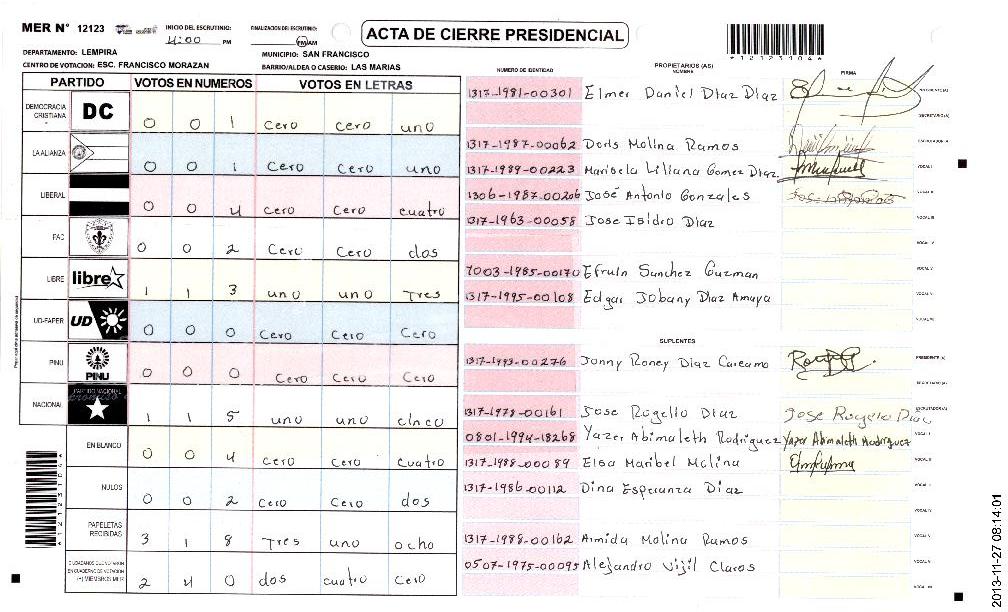 MER N° 12123
INICIO DEL ESCRUTINIO:
4:00 PM
FINALIZACION DEL ESCRUTINIO:
PM/AM
ACTA DE CIERRE PRESIDENCIAL
DEPARTAMENTO: LEMPIRA
MUNICIPIO: SAN FRANCISCO
CENTRO DE VOTACION: ESC. FRANCISCO MORAZAN
BARRIO/ALDEA O CASERIO: LAS MARIAS
PARTIDO VOTOS EN NUMEROS VOTOS EN LETRAS
DEMOCRACIA CRISTIANA DC 0 0 1 cero cero uno
LA ALIANZA 0 0 1 cero cero uno
LIBERAL 0 0 4 cero cero cuatro
PAC 0 0 2 cero cero dos
LIBRE libre 1 1 3 uno uno Tres
UD-FAPER UD 0 0 0 cero cero cero
PINU PINU 0 0 0 cero cero cero
NACIONAL PARTIDO NACIONAL 1 1 5 uno uno cinco
EN BLANCO 0 0 4 cero cero cuatro
NULOS 0 0 2 cero cero dos
PAPELETAS RECIBIDAS 3 1 8 Tres uno ocho
CIUDADANOS QUE VOTARON EN CUADERNO DE VOTACION (+) MIEMBROS MER 2 4 0 dos cuatro cero
NUMERO DE IDENTIDAD PROPIETARIOS (AS) NOMBRE FIRMA
1317-1981-00301 Elmer Daniel Diaz Diaz
SECRETARIO(A)
1317-1987-00062 Doris Molina Ramos ESCRUTADOR (A)
1317-1989-00223 Marisela Liliana Gomez Diaz VOCAL I
1306-1987-00206 José Antonio Gonzales VOCAL II
1317-1963-00058 Jose Isidro Diaz VOCAL III
VOCAL IV
7003-1985-00170 Efrain Sanchez Guzman VOCAL V
1317-1995-00108 Edgar Jobany Diaz Amaya VOCAL VI
VOCAL VII
SUPLENTES
1317-1993-00276 Jonny Roney Diaz Carcamo PRESIDENTE (A)
SECRETARIO(A)
1317-1978-00161 Jose Rogelio Diaz Jose Rogelio Diaz ESCRUTADOR (A)
0801-1994-18268 Yazer Abimaleth Rodriguez Yazer Abimaleth Rodriguez VOCAL I
1317-1988-00089 Elsa Maribel Molina VOCAL II
1317-1986-00112 Dina Esperanza Diaz
VOCAL IV
1317-1988-00162 Amida Molina Ramos VOCAL V
0507-1975-00095 Alejandro Vijil Claros
2013-11-27 08:14:01